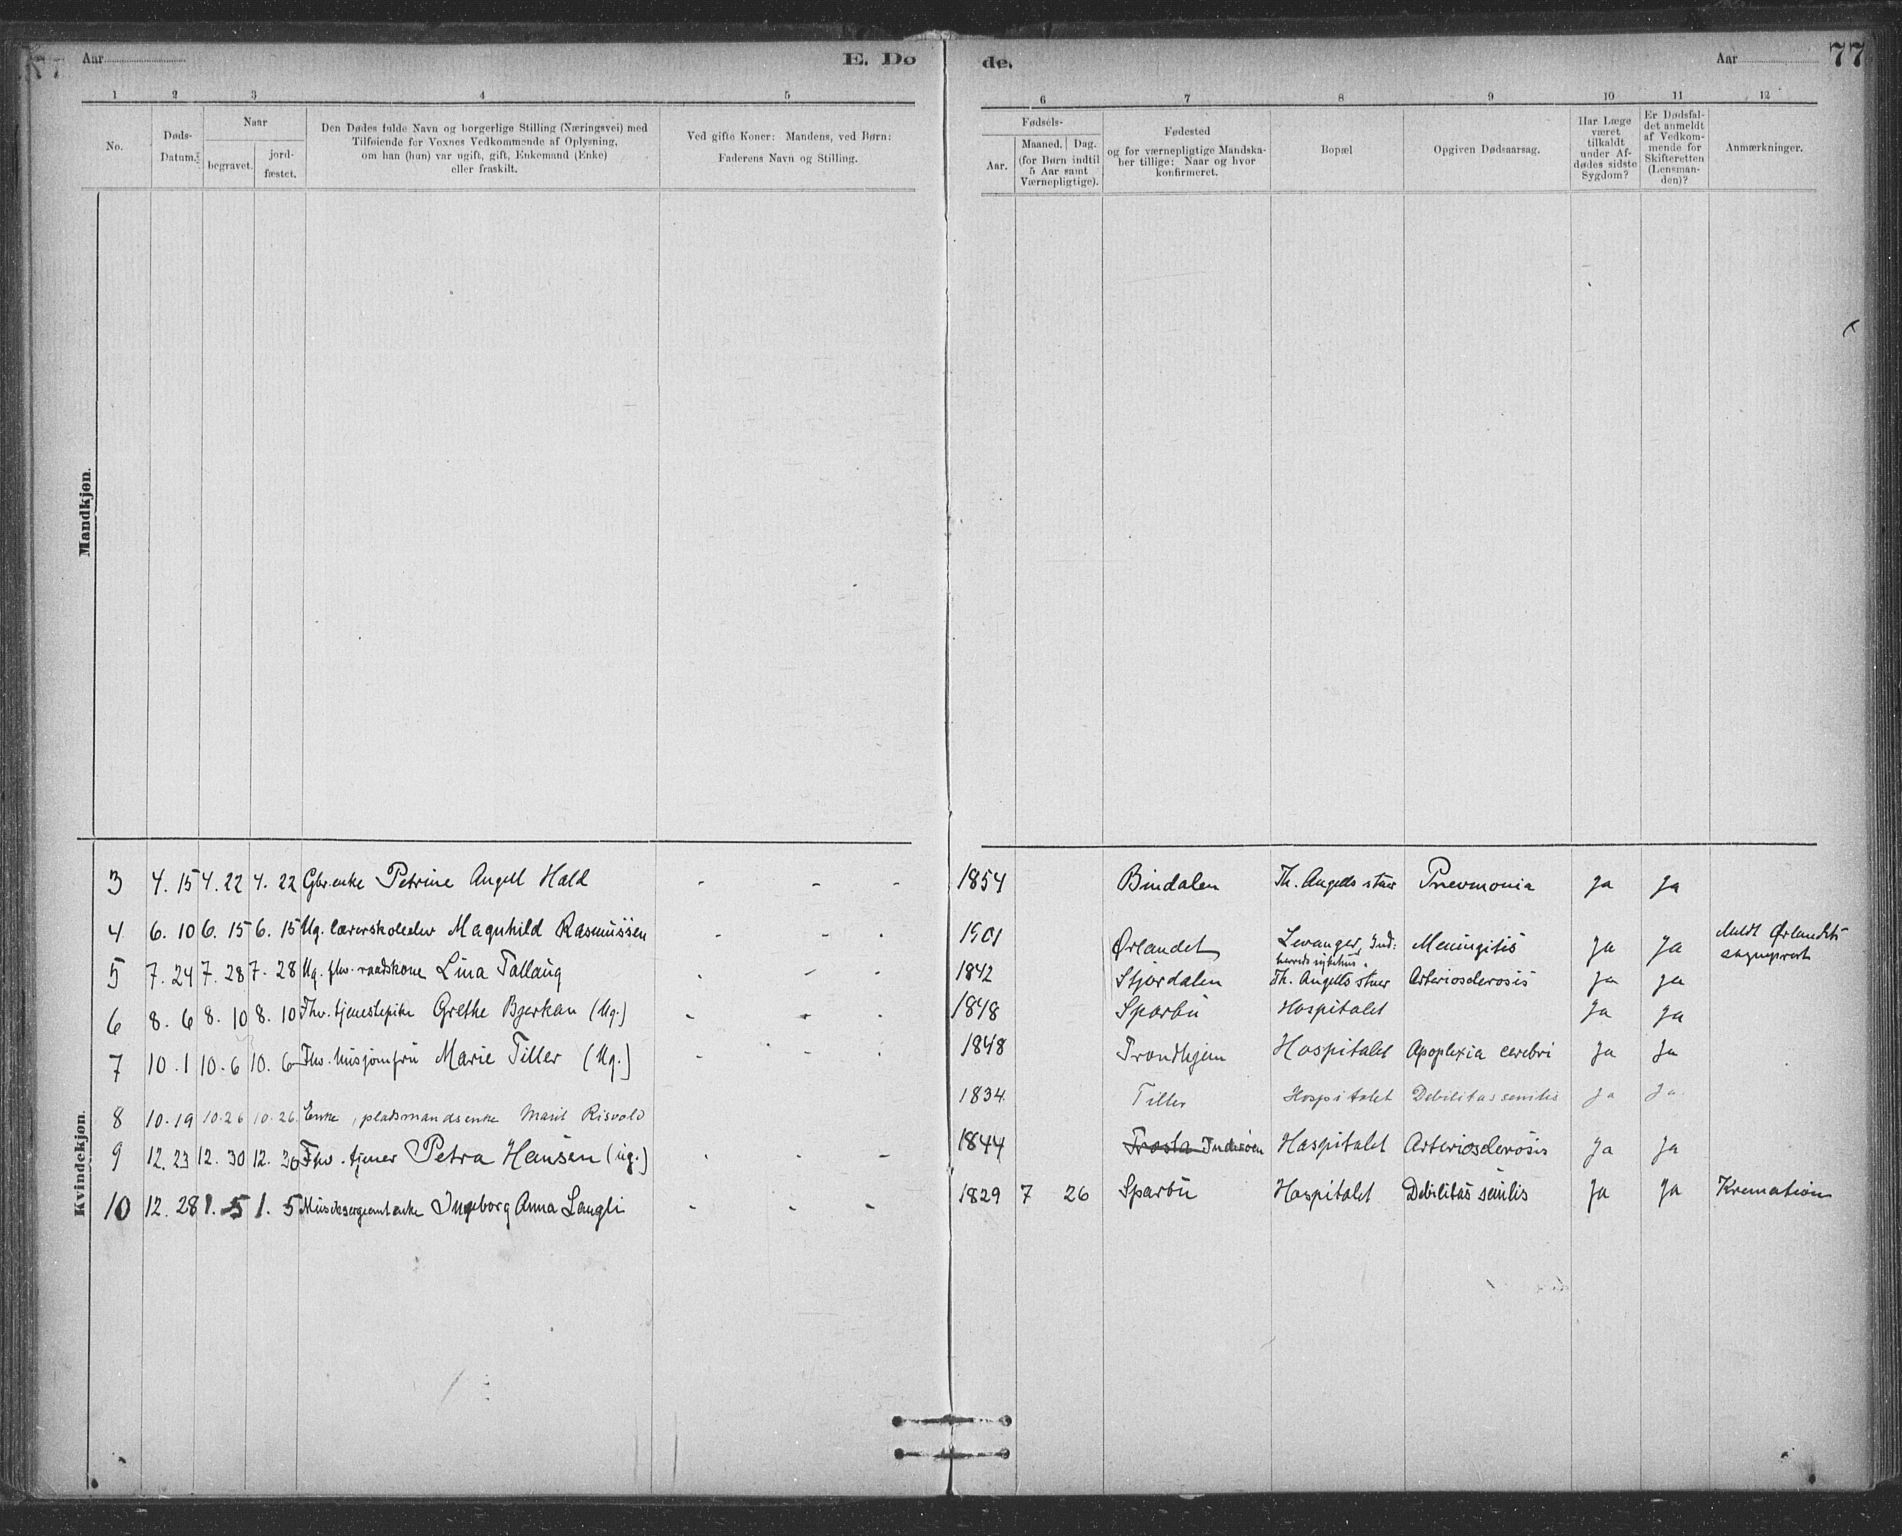 Aar
E. Dø
de.
Aar
77
1 2 3 4 5 6 7 8 9 10 11 12
No.
Døds-
Datum.
Naar
begravet.
jord-
fæstet.
Den Dødes fulde Navn og borgerlige Stilling (Næringsvei) med
Tilføiende for Voxnes Vedkommende af Oplysning,
om han (hun) var ugift, gift, Enkemand (Enke)
eller fraskilt.
Ved gifte Koner: Mandens, ved Børn:
Faderens Navn og Stilling.
Fødsels-
Aar.
Maaned. Dag.
(for Børn indtil
5 Aar samt
Værnepligtige).
Fødested
og for værnepligtige Mandska-
ber tillige: Naar og hvor
konfirmeret.
Bopæl
Opgiven Dødsaarsag.
Har Læge
været
tilkaldt
under Af-
dødes sidste
Sygdom?
Er Dødsfal-
det anmeldt
af Vedkom-
mende for
Skifteretten
(Lensman-
den)?
Anmærkninger.
Mandkjøn.
Kvindekjøn.
3 4. 15 4. 22 4. 22 Gbr.enke Petrine Angell Hald - - - 1854 Bindalen Th. Angells stuer Pnevmonia Ja Ja
4 6. 10 6. 15 6. 15 Ug. lærerskoleelev Magnhild Rasmussen - - - 1901 Ørlandet Levanger, Ind: Meningitis Ja Ja Meldt Ørlandets
herreds sykehus. sogneprest
5 7. 24 7. 28 7. 28 Ug. fhv. raadskone Lina Tallaug - - - 1842 Stjørdalen Th. Angells stuer Arteriosclerosis Ja Ja
6 8. 6 8. 10 8. 10 Fhv. tjenestepike Grethe Bjerkan (Ug.) - - - 1848 Sparbu Hospitalet Ja Ja
7 10. 1 10. 6 10. 6 Fhv. husjomfru Marie Tiller (Ug.) - - - 1848 Trondhjem Hospitalet Apoplexia cerebri Ja Ja
8 10. 19 10. 26 10. 26. Enke, pladsmandsenke Marit Risvold 1834 Tiller Hospitalet Debilitas senilis Ja Ja.
9 12. 23 12. 30 12. 30 Fhv. tjener Petra Hansen (ug.) - - - 1844 Frosta Inderøen Hospitalet Arteriosclerosis Ja Ja
10 12. 28 1. 5 1. 5 Musiksergeantenke Ingeborg Anna Langli - - - 1829 7 26 Sparbu Hospitalet Debilitas senilis Ja Ja Kremation